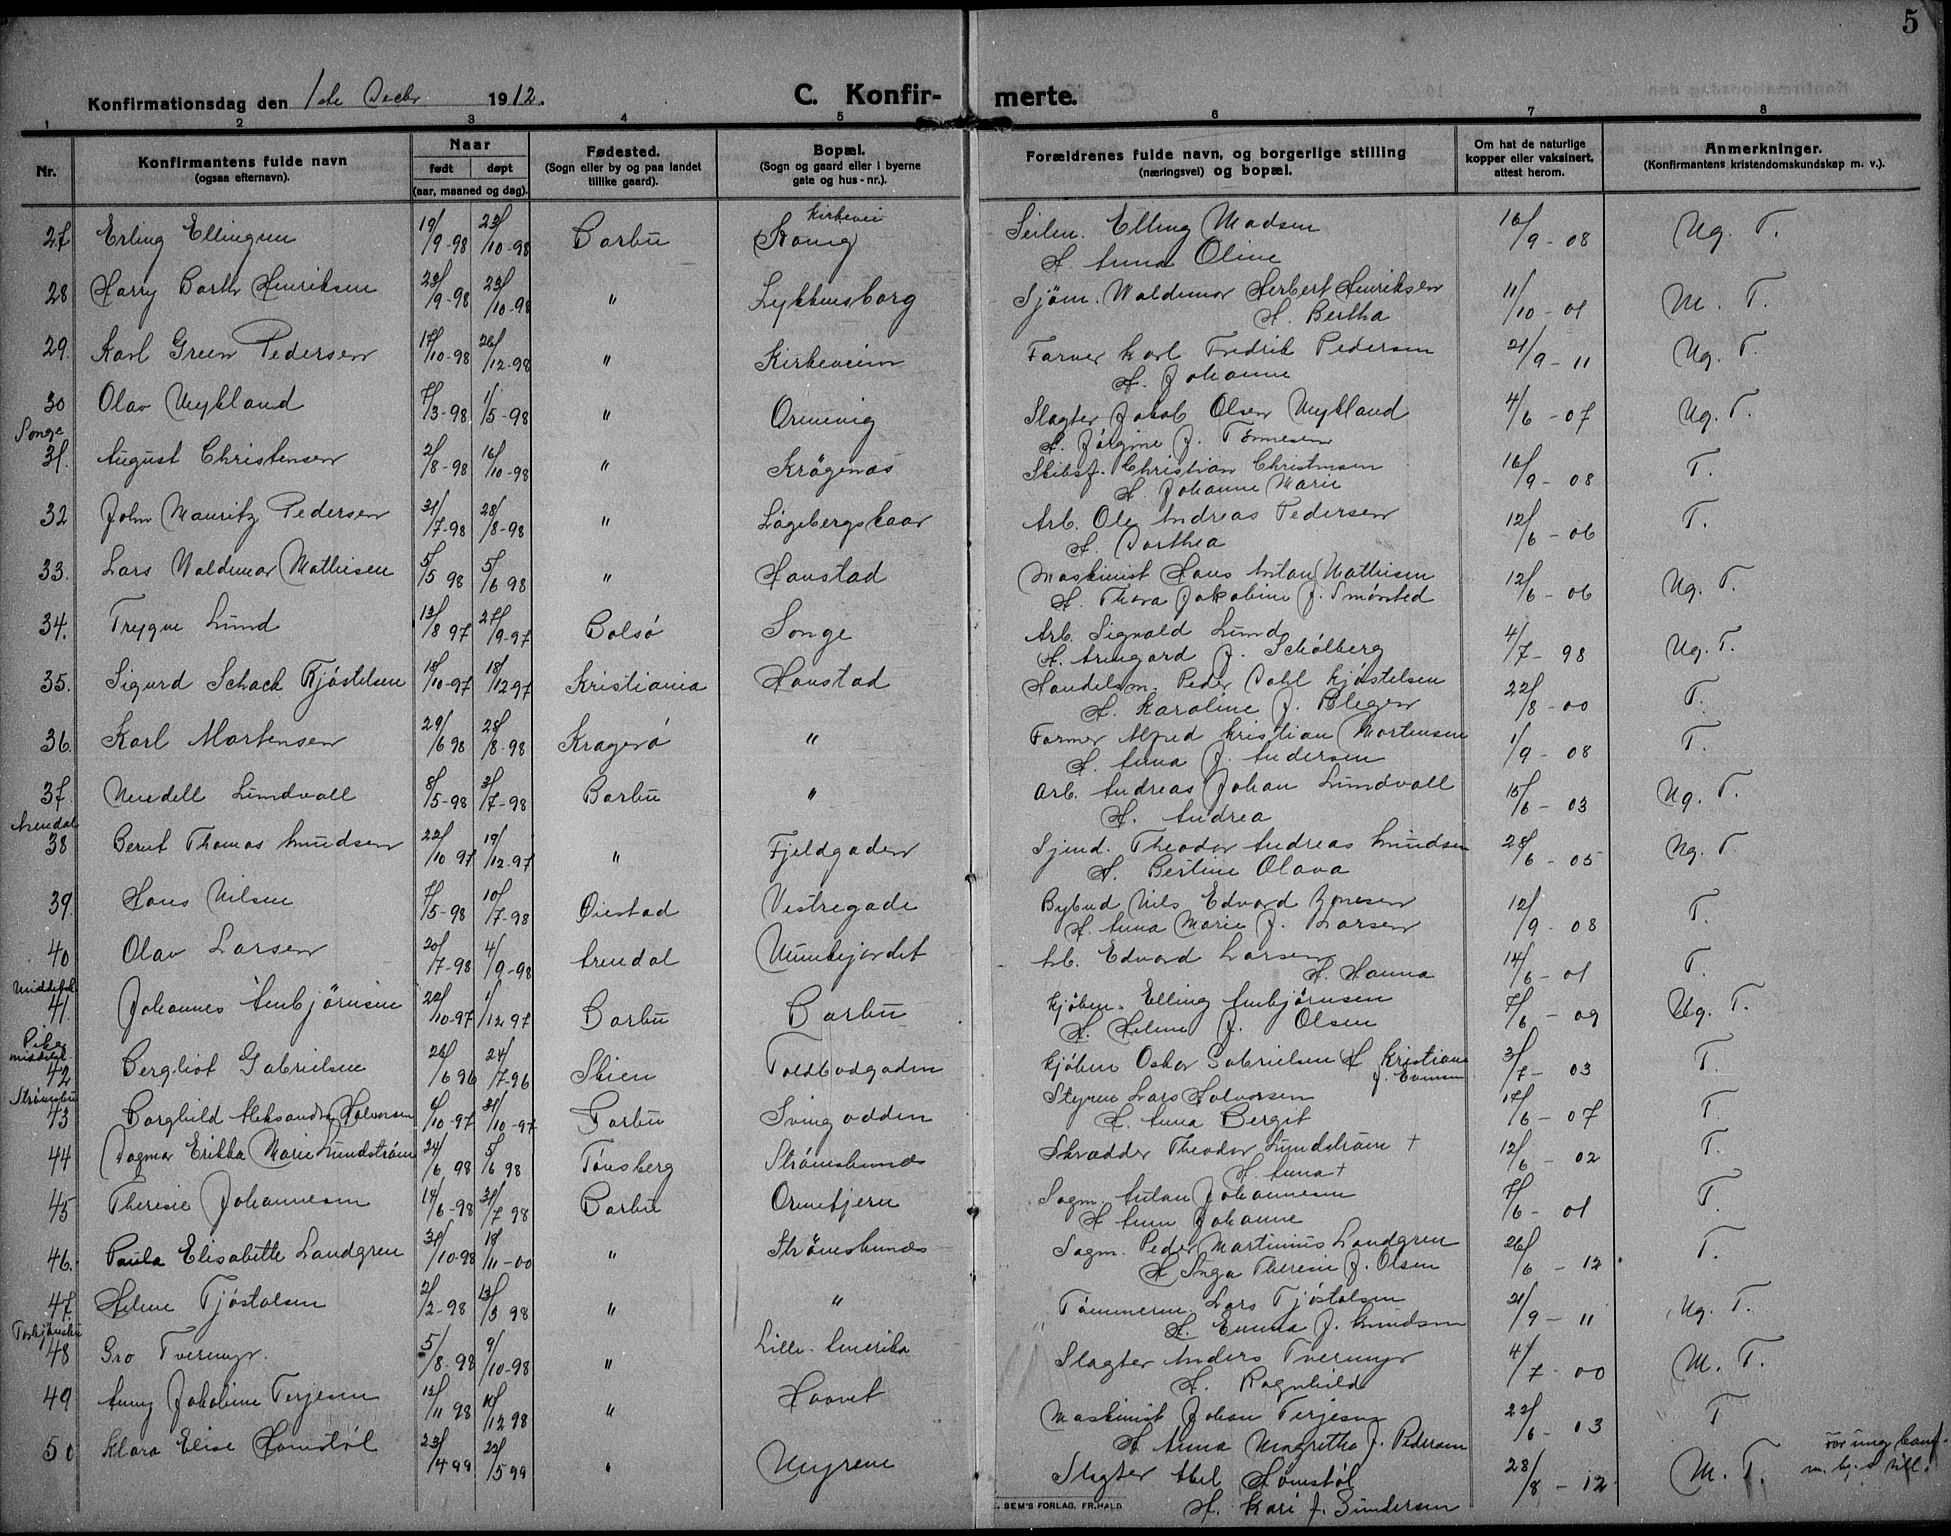 5
Konfirmationsdag den 1ste Decbr 1912.
C. Konfirmerte.
1 2 3 4 5 6 7 8
Nr.
Konfirmantens fulde navn
(ogsaa efternavn).
Naar
født døpt
(aar, maaned og dag).
Fødested.
(Sogn eller by og paa landet
tillike gaard).
Bopæl.
(Sogn og gaard eller i byerne
gate og hus-nr.).
Forældrenes fulde navn, og borgerlige stilling
(næringsvei) og bopæl.
Om hat de naturlige
kopper eller vaksinert,
attest herom.
Anmerkninger.
(Konfirmantens kristendomskundskap m. v.).
Kirkevei
27 Erling Ellingsen 19/9-98 23/10-98 Barbu Seilm. Elling Madsen 16/9-08 Ng. T.
H. Anna Oline
28 Harry Barth Henriksen 23/9-98 23/10-98 " Lykkensborg Sjöm. Waldemar Herbert Henriksen 11/10-01 M. T.
H. Bertha
29. Karl Green Pedersen 17/10-98 26/12-98 " Kirkeveien Farver Karl Fredrik Pedersen 21/9-11 Ng. T.
H. Johanne
30 Olav Mykland 7/3-98 1/5-98 " Ormevig Slagter Jakob Olsen Mykland 4/6-07 Ng. T.
H. Jørgine f. Tønnesen
Songe
31. August Christensen 2/8-98 16/10-98 " Krøgenæs Skibsf. Christian Christensen 16/9-08 T.
H. Johanne Marie
32 John Mauritz Pedersen 31/7-98 28/8-98 " Lögebergskaar Arb. Ole Andreas Pedersen 12/6-06 T.
H. Dorthea
33. Lars Waldemar Mathisen 5/5 98 5/6 98 " Havstad Maskinist Hans Anton Mathisen 12/6-06 Ng. T.
H. Thora Jakobine f. Smørsted
34. Trygve Lund 13/8 97 27/9-97 Bolsø Songe Arb. Sigvald Lund 4/7-98 Ng. T.
H. Armgard f. Schølberg
35. Sigurd Schack Kjøstelsen 18/10-97 18/12 97 Kristiania Havstad Handelsm. Peder Dahl Kjøstelsen 22/8-00 T.
H. Karoline f. Blegen
36. Karl Martensen 29/6 98 28/8-98 Kragerø " Former Alfred Kristian Martensen 1/9-08 T.
H. Anna f. Andersen
37. Lundvall 8/5-98 31/7-98 Barbu " Arb. Andreas Johan Lundvall 15/6-03 Ng. T.
H. Andrea
Arendal
38 Bernt Thomas Knudsen 22/10 97 19/12-97 " Fjeldgaden Sjmd. Theodor Andreas Knudsen 28/6-05 Ng. T
H. Bertine Olava
39. Hans Nilsen 7/5-98 10/7-98 Øiestad Vestregade Bybud Nils Edvard 12/9-08 T.
H. Anna Marie f. Larsen
40 Olav Larsen 20/7-98 4/9-98 Arendal Munkejordet Arb. Edvard Larsen 14/6-01 T.
H. Hanna
41. Johannes Ambjørnsen 22/10-97 1/12 97 Barbu Barbu Kjøbm. Elling Ambjørnsen 7/6-09 Ng. T.
H. Helene f. Olsen
Piker
42 Bergliot Gabrielsen 26/6 96 24/7-96 Skien Toldbodgaden Kjøbm Oskar Gabrielsen H Kristiane 3/7-03 T.
f. Evensen
Strømsbu
43 Borghild Aleksandra Halvorsen 6/10-97 31/10-97 Barbu Svingodden Styrm Lars Halvorsen 17/6-07 T.
H. Anna Bergit
44 Dagmar Erikka Marie Lundstrøm 24/6 98 5/6 98 Tønsberg Strømsbunæs Skrædder Theodor Lundstrøm + 12/6-02 T.
H. Anna +
45 Therese Johannesen 14/6-98 31/7 98 Barbu Ormekjern Sagm. Anton Johannesen 7/6-01 T.
H Anne Johanne
46. Paula Elisabeth Landgren 31/10-98 18/11-00 " Strømsbunæs Sagm. Peder Martinius Landgren 26/6-12 T.
H Inga Therese f. Olsen
47. Helene Tjøstolsen 2/2-98 13/3 98 " " Tømmerm. Lars Tjøstolsen 21/9-11 Ng. T.
H. Emma f. Knudsen
48 Gro Tveremyr. 5/8-98 9/10-98 " Lille-Amerika Slagter Anders Tveremyr 4/7-00 M. T.
H. Ragnhild
49 Anny Jakobine Terjesen 12/11 98 10/12 98 " Maskinist Johan Terjesen 22/6-03 T
H Anna Magritha f. Pedersen
50 Klara Elise Hømstøl 23/4 99 22/5 99 " Myrene Slagter Abel Hømstøl 28/8-12 M. T.
H. Kari f. Gundersen
SEM'S FORLAG, FR.HALD